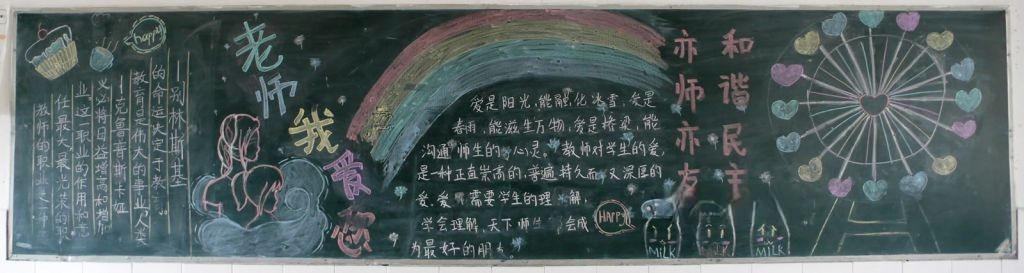 happy!
教师的职业
任最大最光荣的职
业这一职业的作用和意
义必将日益增高和增
—克鲁普斯卡娅
教育是伟大的事业,人类
的命运决定于教
—别林斯基
老师我爱您
爱是阳光,能融化冰雪,爱是
春雨,能滋生万物,爱是桥梁,能
沟通师生的心灵。教师对学生的爱,
是一种正直崇高的,普遍持久而又深厚的
爱,爱需要学生的理解,
学会理解,天下师生 会成
为最好的朋 。
HAPPY
和谐民主
亦师亦友
MILK
MILK
MILK